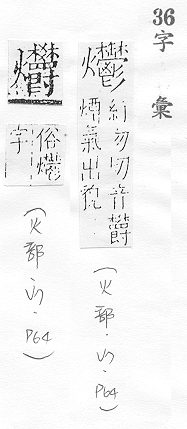 36字彙
爩
紆勿切音欝
煙氣出皃
(火部.P64)
俗爩
字
(火部.P64)